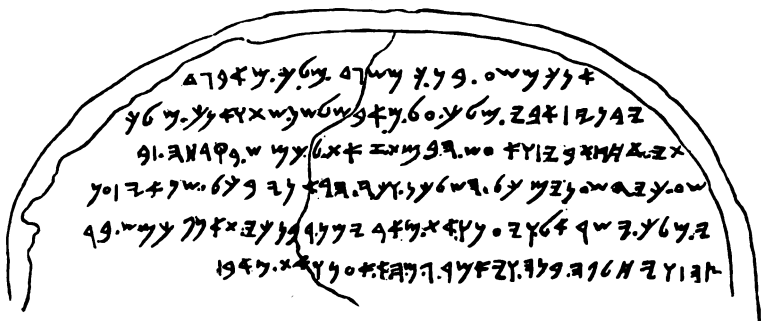 𐤀𐤍𐤊.𐤌𐤔𐤏.𐤁𐤍.𐤊𐤌𐤔𐤂𐤃.𐤌𐤋𐤊.𐤌𐤀𐤁.𐤄𐤃
𐤉𐤁𐤍𐤉|𐤀𐤁𐤉.𐤌𐤋𐤊.𐤏𐤋.𐤌𐤀𐤁.𐤔𐤋𐤔𐤍.𐤔𐤕.𐤅𐤀𐤍𐤊.𐤌𐤋𐤊
𐤕𐤉.𐤀𐤇𐤓.𐤀𐤁𐤉|𐤅𐤀𐤏𐤔.𐤄𐤁𐤌𐤕.𐤆𐤀𐤕.𐤋𐤊𐤌𐤔.𐤁𐤒𐤓𐤇𐤄|𐤁
𐤔𐤏.𐤊𐤉.𐤄𐤔𐤏𐤍𐤉.𐤌𐤊𐤋.𐤄𐤔𐤋𐤊𐤍.𐤅𐤊𐤉.𐤄𐤓𐤀𐤍𐤉.𐤁𐤊𐤋.𐤔𐤍𐤀𐤉|𐤏𐤌𐤓
𐤉.𐤌𐤋𐤊.𐤉𐤔𐤓𐤀𐤋.𐤅𐤉𐤏𐤍𐤅.𐤀𐤕.𐤌𐤀𐤁.𐤉𐤌𐤍.𐤓𐤁𐤍.𐤊𐤉.𐤉𐤀𐤍𐤐.𐤊𐤌𐤔.𐤁𐤀𐤓
𐤑𐤄|𐤅𐤉𐤇𐤋𐤐𐤄.𐤁𐤍𐤄.𐤅𐤉𐤀𐤌𐤓.𐤂𐤌.𐤄𐤀.𐤀𐤏𐤍𐤅.𐤀𐤕.𐤌𐤀𐤁|